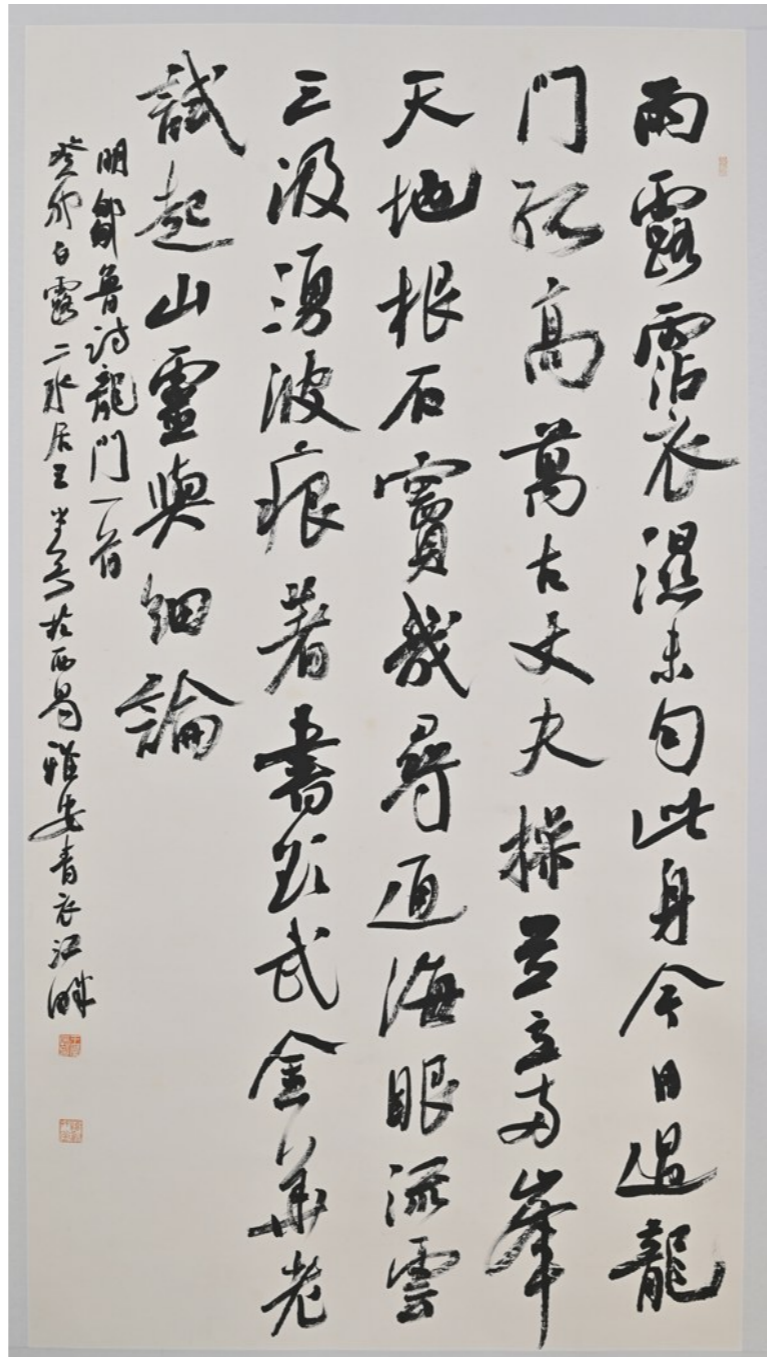 雨露霑衣濕未勻此身今日過龍
門孤高萬古丈夫操並立兩峯
天地根石竇幾尋通海眼流雲
三汲湧波痕著書武金華老
試起山靈與細論
明鄒魯詩龍門一首
癸卯白露二水居王於西蜀雅安青衣江畔